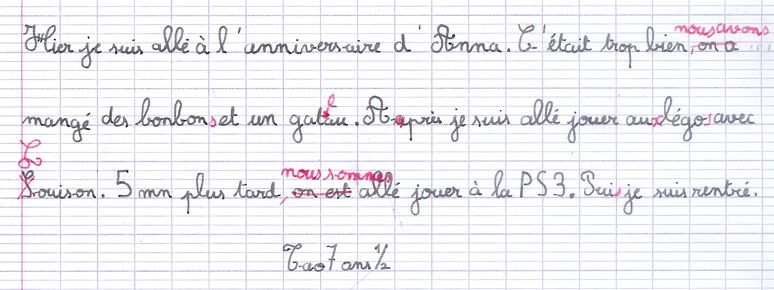 nous avons
Hier je suis allé à l'anniversaire d'Anna. C'était trop bien, on a
mangé des bonbons et un gateau. Après je suis allé jouer aux légos avec
L
nous sommes
Louison. 5 mn plus tard, on est allé jouer à la PS3. Puis je suis rentré.
Tao 7 ans 1/2